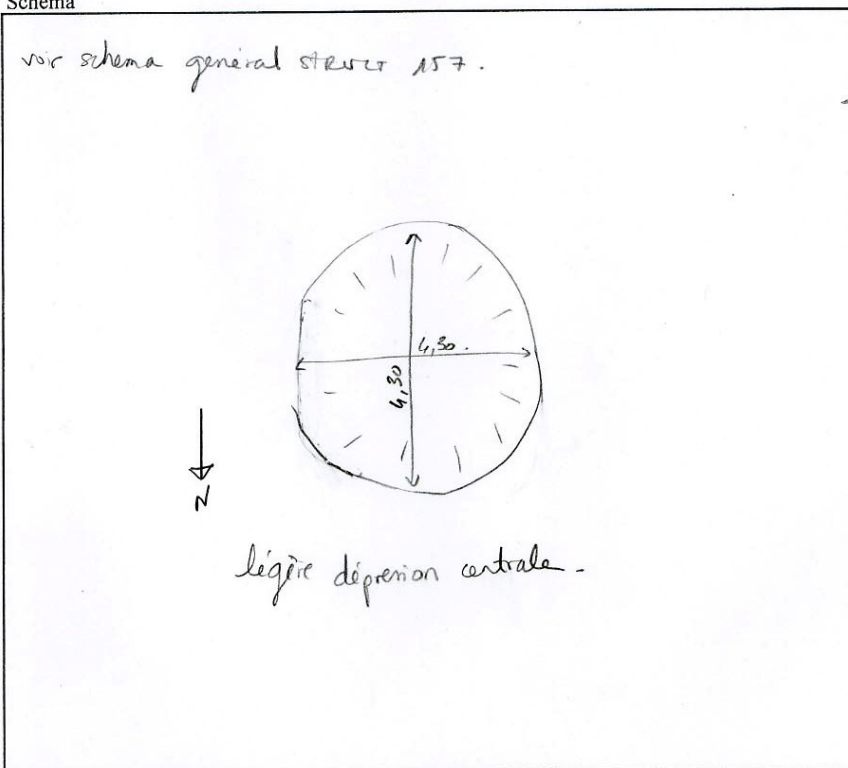 Schéma
voir schema général STRUCT 157.
4,30.
4,30
N
légère dépression centrale.